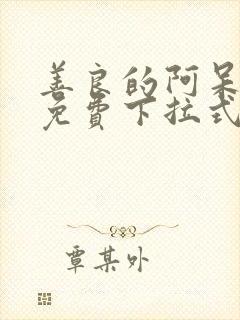 善良的阿呆
免费下拉式
覃某外